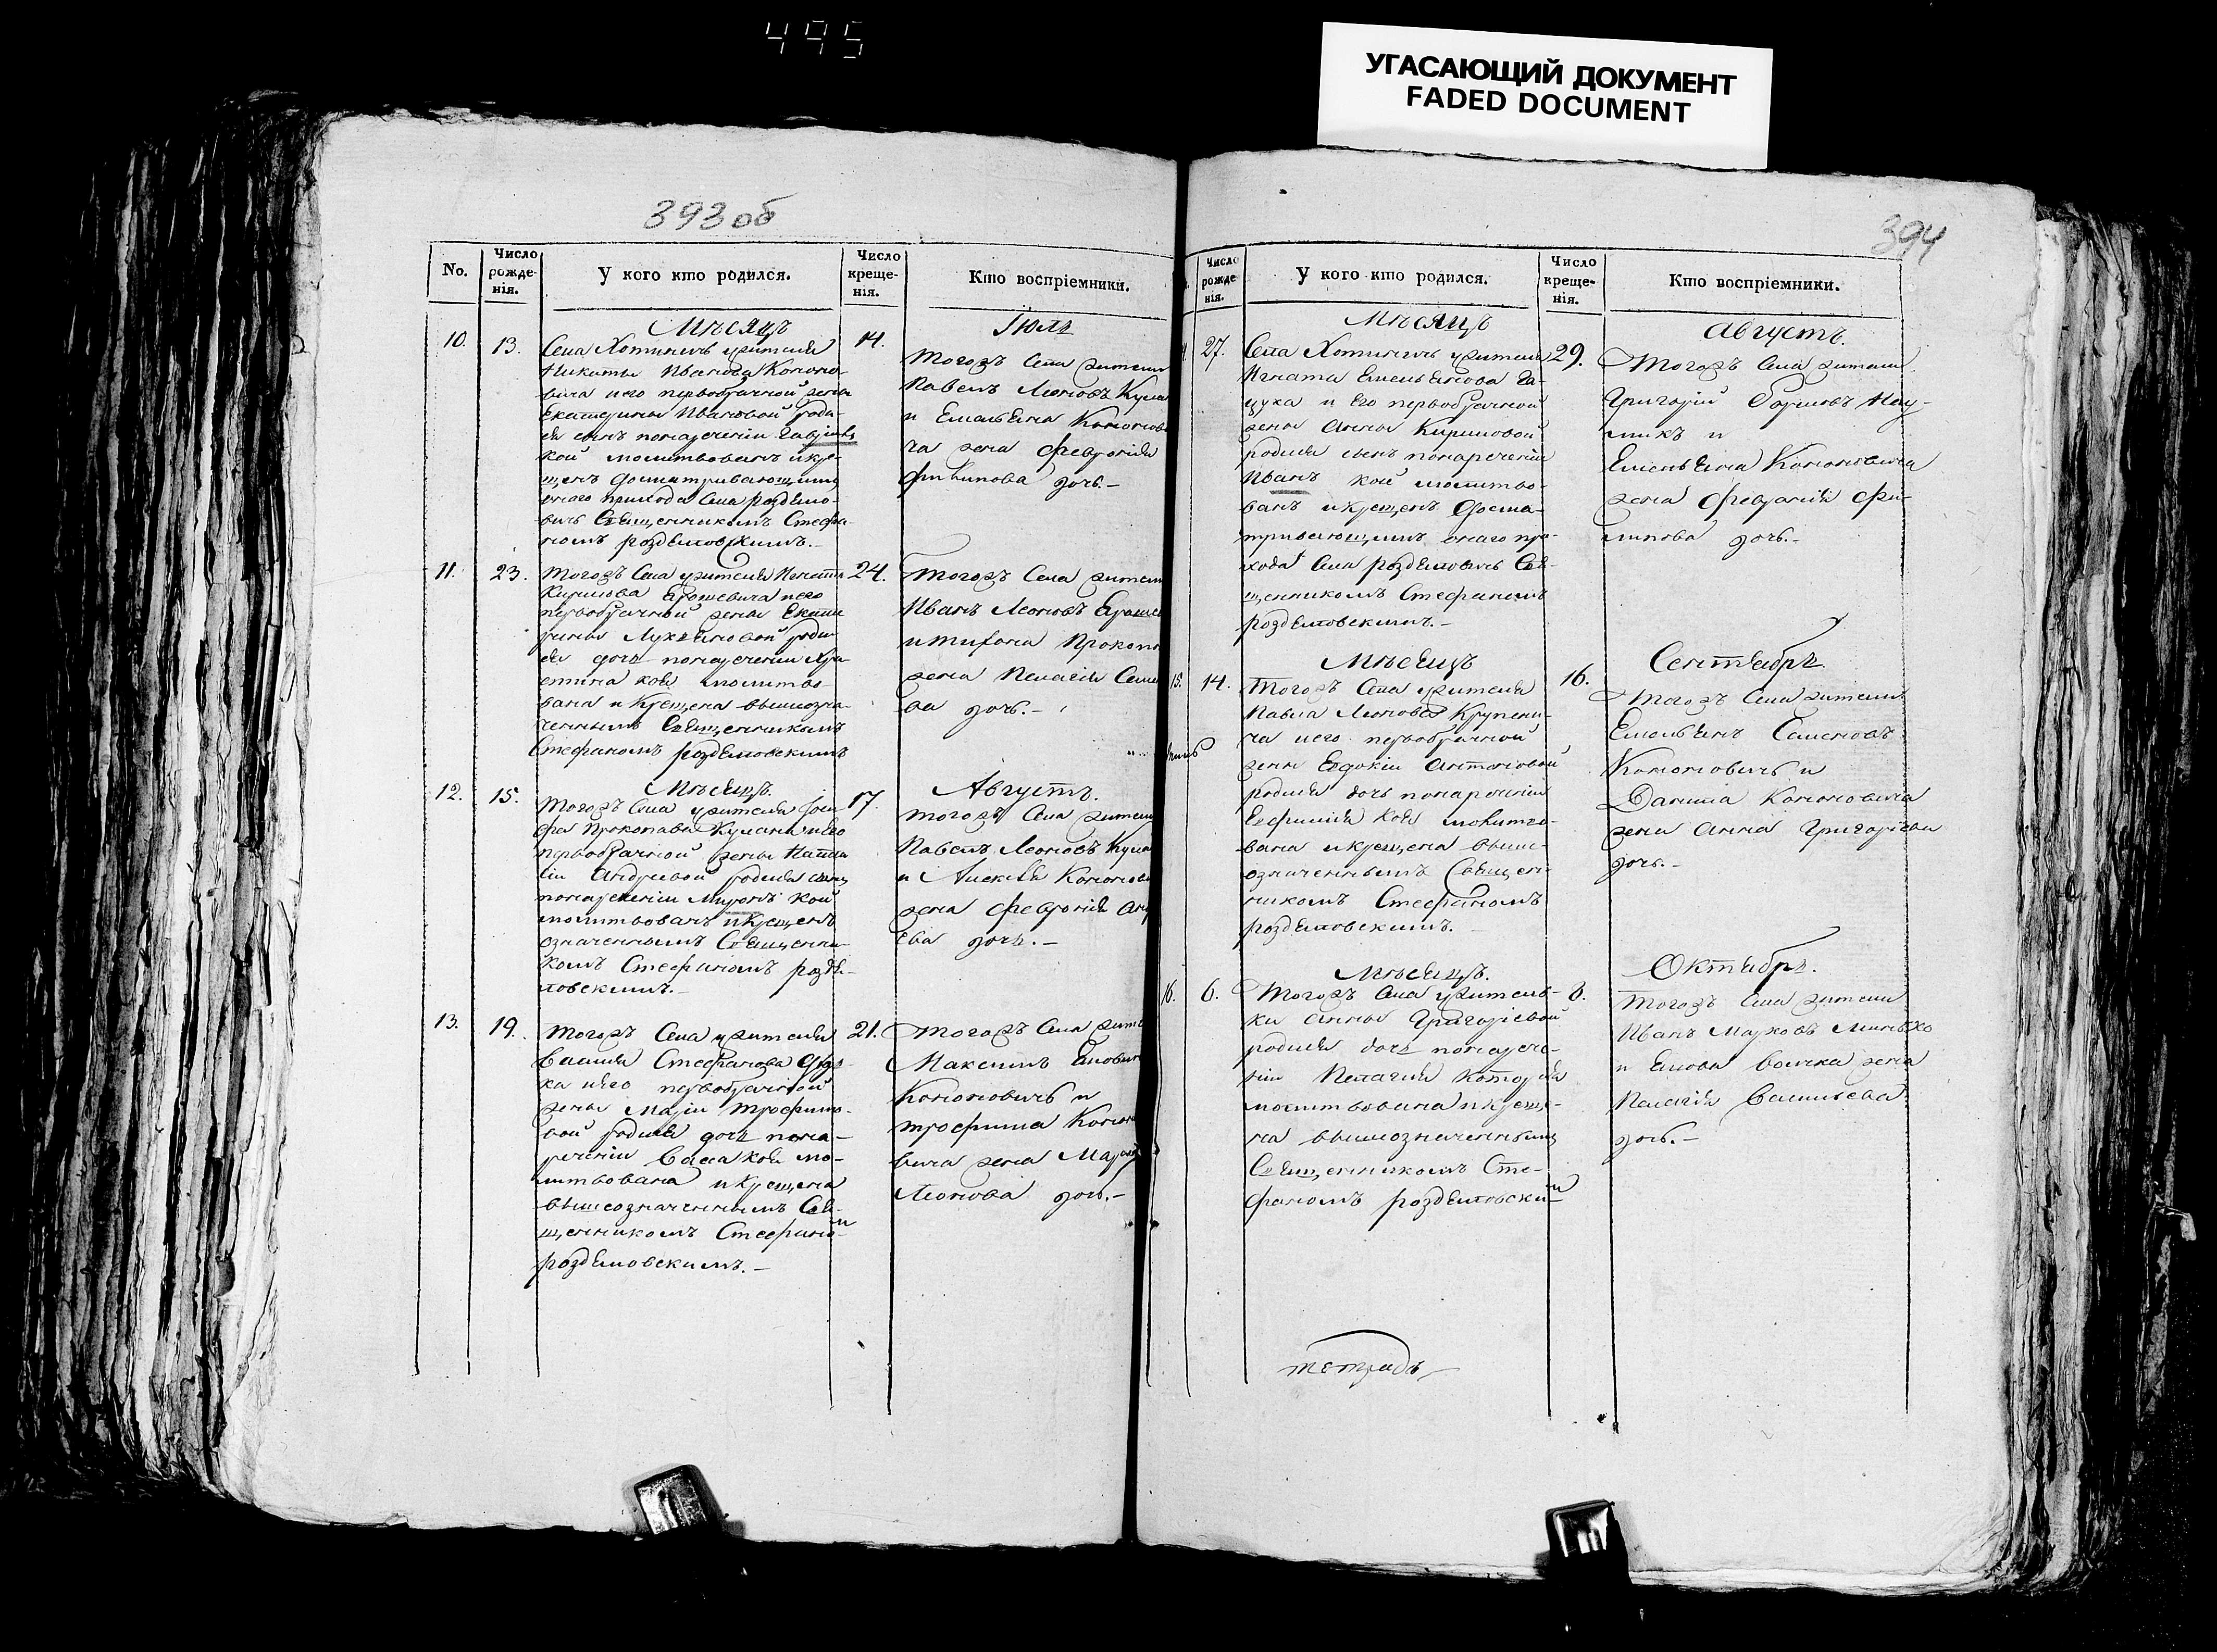 495
УГАСАЮЩИЙ ДОКУМЕНТ
FADED DOCUMENT
393 об
No.
Число рожденія.
У кого кто родился.
Число крещенія.
Кто воспріемники.
Мѣсяцъ
Іюль
10.
13.
Села Хотиничь житель
Никиты Иванова Кононо-
вича и его первобрачной жены
Екатерины Ивановой роди-
ся сынъ по нареченіи
кой молитвованъ и кре-
щенъ досматривающимъ
онаго прихода села Роздѣло-
вичь Священникомъ Стефа-
номъ Роздѣловскимъ.-
14.
Тогожъ Села жители
Павелъ Леоновъ Кула
и Емельяна Кононови
ча жена Февронія
Филипова дочь.-
11.
23.
Тогожъ Села жителя Игната
Кирилова его
первобрачной жены Екате
рины Лукьяновой роди
ся дочь по нареченіи Хри-
стина коя молитво-
вана и крещена вышеозна-
ченнымъ Священникомъ
Стефаномъ Роздѣловскимъ
24.
Тогожъ Села жители
Иванъ Леоновъ
и Тихона Прокопо
жена Пелагія Семе
ва дочь.-
Мѣсяцъ.
Августъ.
12.
15.
Тогожъ Села жителя Іоси
фа Прокопова и его
первобрачной жены Ната
ліи Андреевой родися сынъ
по нареченіи Миронъ кой
молитвованъ и крещенъ
означеннымъ Священни-
комъ Стефаномъ Роздѣ-
ловскимъ.-
17.
Тогожъ Села жители
Павелъ Леоновъ Кула
и Алексѣя Кононови
жена Февронія Анд
ева дочь.-
13.
19.
Тогожъ Села жителя
Василія Стефанова
ка и его первобрачной
жены Маріи Трофимо-
вой родися дочь по на-
реченіи Васса коя мо-
литвована и крещена
вышеозначеннымъ Свя-
щенникомъ Стефаном
Роздѣловскимъ.-
21.
Тогожъ Села жите
Максимъ
Кононовичь и
Трофима Конон
вича жена Марія
Леонова дочь.-
394
Число рожденія.
У кого кто родился.
Число крещенія.
Кто воспріемники.
Мѣсяцъ
Августъ.
27.
Села Хотиничь житель
Игната Емельянова Га-
цука и его первобрачной
жены Анны Кириловой
родися сынъ по нареченіи
Иванъ кой молитво-
ванъ и крещенъ досма-
тривающимъ онаго при-
хода Села Роздѣловичь Свя-
щенникомъ Стефаномъ
Роздѣловскимъ.-
29.
Тогожъ Села жители
Григорій Борисовъ
и
Емельяна Кононовича
жена Февронія Фи-
липова дочь.-
Мѣсяцъ
Сентябрь
15.
14.
Тогожъ Села жителя
Павла Леонова
и его первобрачной
жены Евдокіи Антоновой
родися дочь по нареченіи
Евфимія коя молитво-
вана и крещена выше-
означеннымъ Священ-
никомъ Стефаномъ
Роздѣловскимъ.-
16.
Тогожъ Села жители
Емельянъ Семеновъ
Кононовичь и
Данила Кононовича
жена Анна Григорьева
дочь.-
Мѣсяцъ.
Октябрь.
16.
6.
Тогожъ Села житель-
ки Анны Григорьевой
родися дочь по нарече-
ніи Пелагія которая
молитвована и креще-
на вышеозначеннымъ
Священникомъ Сте-
фаномъ Роздѣловским
8.
Тогожъ Села жители
Иванъ Марковъ Минько
и жена
Пелагія Васильева
дочь.-
тетрадь